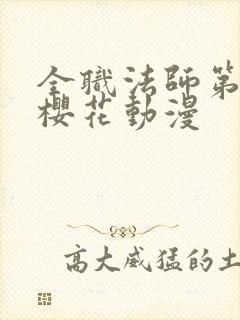 全職法師第
櫻花動漫
高大威猛的土